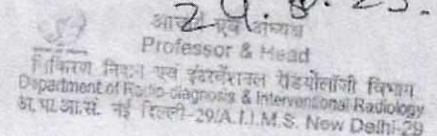 24.8.25.
आचार्य एवं अध्यक्ष
Professor & Head
विकिरण निदान एवं इंटरवेंशनल रेडियोलॉजी विभाग
Department of Radio-diagnosis & Interventional Radiology
अ. भा. आ. सं. नई दिल्ली-29/A.I.I.M.S. New Delhi-29